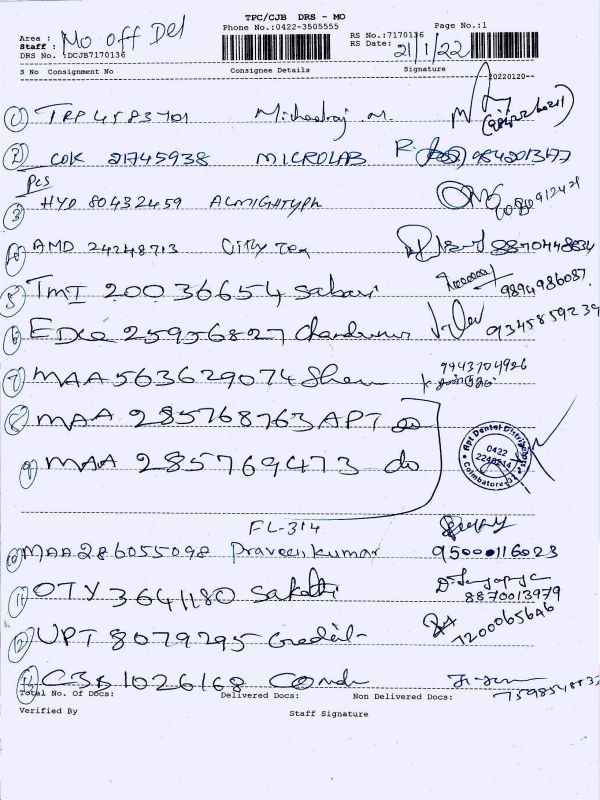 TPC/CJB DRS - MO
Phone No.:0422-3505555
Page No.:1
Area : Mo off Del
Staff :
DRS No. :DCJB7170136
RS No.:7170136
RS Date: 21/1/22
S No Consignment No Consignee Details Signature
20220120--
1 TRP 4583701 Michaelraj . M.
2 COK 21745938 MICROLAB 9842013477
Pcs
3 HYD 80432459 ALMIGHTY Ph
4 AMD 24248713 City Tex 8870448834
5 TMI 20036654 Sabari 9894986087
6 EDC 25956827 9345859239
7 MAA 563629074 9443704926
8 MAA 285768763 APT do
9 MAA 285769473 do
Apt Dental Distributors
0422
Coimbatore
FL-314
10 MAA 286055098 Praveen kumar 95000116023
11 OTY 3641180 Sakthi 8870013979
12 UPT 8079295 7200065646
13 1026168
Total No. Of Docs: Delivered Docs: Non Delivered Docs:
Verified By Staff Signature